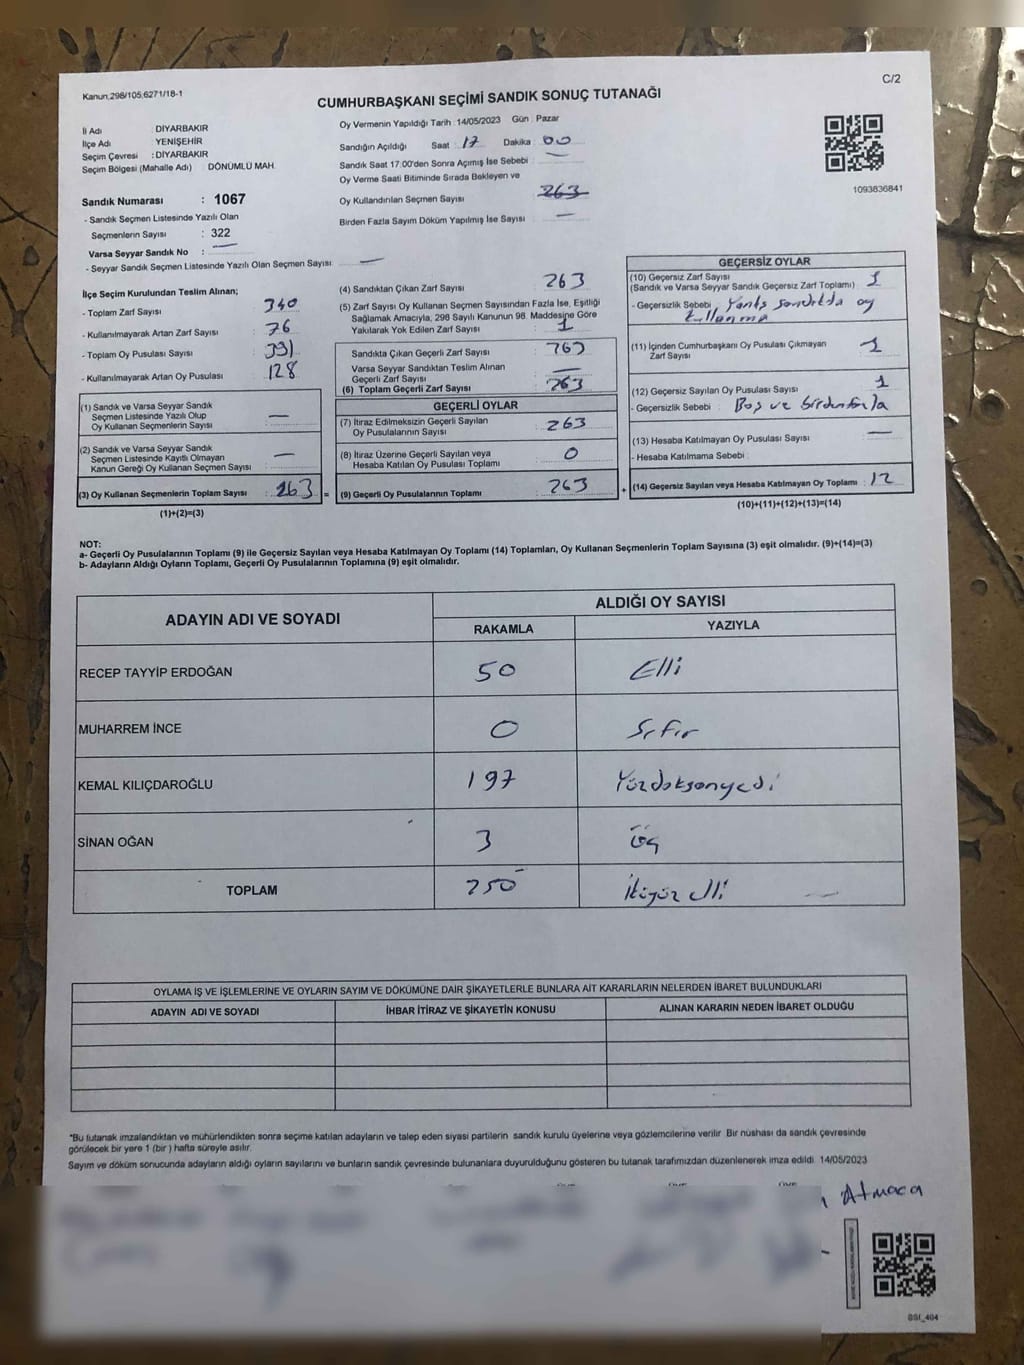 Kanun,298/105,6271/18-1
C/2
CUMHURBAŞKANI SEÇİMİ SANDIK SONUÇ TUTANAĞI
İl Adı DİYARBAKIR
İlçe Adı YENİŞEHİR
Seçim Çevresi : DİYARBAKIR
Seçim Bölgesi (Mahalle Adı) DÖNÜMLÜ MAH.
Sandık Numarası : 1067
- Sandık Seçmen Listesinde Yazılı Olan
Seçmenlerin Sayısı : 322
Varsa Seyyar Sandık No : —
- Seyyar Sandık Seçmen Listesinde Yazılı Olan Seçmen Sayısı: —
Oy Vermenin Yapıldığı Tarih :14/05/2023 Gün : Pazar
Sandığın Açıldığı Saat : 17 Dakika : 00
Sandık Saat 17:00'den Sonra Açımış İse Sebebi : —
Oy Verme Saati Bitiminde Sırada Bekleyen ve
Oy Kullandırılan Seçmen Sayısı 263
Birden Fazla Sayım Döküm Yapılmış İse Sayısı : —
1093836841
İlçe Seçim Kurulundan Teslim Alınan;
- Toplam Zarf Sayısı : 340
- Kullanılmayarak Artan Zarf Sayısı : 76
- Toplam Oy Pusulası Sayısı : 391
- Kullanılmayarak Artan Oy Pusulası : 128
(1) Sandık ve Varsa Seyyar Sandık
Seçmen Listesinde Yazılı Olup
Oy Kullanan Seçmenlerin Sayısı : —
(2) Sandık ve Varsa Seyyar Sandık
Seçmen Listesinde Kayıtlı Olmayan
Kanun Gereği Oy Kullanan Seçmen Sayısı : —
(3) Oy Kullanan Seçmenlerin Toplam Sayısı : 263 =
(1)+(2)=(3)
(4) Sandıktan Çıkan Zarf Sayısı : 263
(5) Zarf Sayısı Oy Kullanan Seçmen Sayısından Fazla İse, Eşitliği
Sağlamak Amacıyla, 298 Sayılı Kanunun 98. Maddesine Göre
Yakılarak Yok Edilen Zarf Sayısı : 1
Sandıkta Çıkan Geçerli Zarf Sayısı : 263
Varsa Seyyar Sandıktan Teslim Alınan
Geçerli Zarf Sayısı : —
(6) Toplam Geçerli Zarf Sayısı : 263
GEÇERLİ OYLAR
(7) İtiraz Edilmeksizin Geçerli Sayılan
Oy Pusulalarının Sayısı : 263
(8) İtiraz Üzerine Geçerli Sayılan veya
Hesaba Katılan Oy Pusulası Toplamı : 0
(9) Geçerli Oy Pusulalarının Toplamı : 263 +
GEÇERSİZ OYLAR
(10) Geçersiz Zarf Sayısı
(Sandık ve Varsa Seyyar Sandık Geçersiz Zarf Toplamı) : 1
- Geçersizlik Sebebi : Yanlış sandıkta oy
kullanma
(11) İçinden Cumhurbaşkanı Oy Pusulası Çıkmayan
Zarf Sayısı : 1
(12) Geçersiz Sayılan Oy Pusulası Sayısı : 1
- Geçersizlik Sebebi : Boş ve birdenfazla
(13) Hesaba Katılmayan Oy Pusulası Sayısı : —
- Hesaba Katılmama Sebebi :
(14) Geçersiz Sayılan veya Hesaba Katılmayan Oy Toplamı : 12
(10)+(11)+(12)+(13)=(14)
NOT:
a- Geçerli Oy Pusulalarının Toplamı (9) ile Geçersiz Sayılan veya Hesaba Katılmayan Oy Toplamı (14) Toplamları, Oy Kullanan Seçmenlerin Toplam Sayısına (3) eşit olmalıdır. (9)+(14)=(3)
b- Adayların Aldığı Oyların Toplamı, Geçerli Oy Pusulalarının Toplamına (9) eşit olmalıdır.
ADAYIN ADI VE SOYADI
ALDIĞI OY SAYISI
RAKAMLA YAZIYLA
RECEP TAYYİP ERDOĞAN 50 Elli
MUHARREM İNCE 0 Sıfır
KEMAL KILIÇDAROĞLU 197 Yüzdoksanyedi
SİNAN OĞAN 3 Üç
TOPLAM 250 İkiyüz elli
OYLAMA İŞ VE İŞLEMLERİNE VE OYLARIN SAYIM VE DÖKÜMÜNE DAİR ŞİKAYETLERLE BUNLARA AİT KARARLARIN NELERDEN İBARET BULUNDUKLARI
ADAYIN ADI VE SOYADI İHBAR İTİRAZ VE ŞİKAYETİN KONUSU ALINAN KARARIN NEDEN İBARET OLDUĞU
*Bu tutanak imzalandıktan ve mühürlendikten sonra seçime katılan adayların ve talep eden siyasi partilerin sandık kurulu üyelerine veya gözlemcilerine verilir. Bir nüshası da sandık çevresinde
görülecek bir yere 1 (bir ) hafta süreyle asılır.
Sayım ve döküm sonucunda adayların aldığı oyların sayılarını ve bunların sandık çevresinde bulunanlara duyurulduğunu gösteren bu tutanak tarafımızdan düzenlenerek imza edildi. 14/05/2023
Atmaca
BSI_404